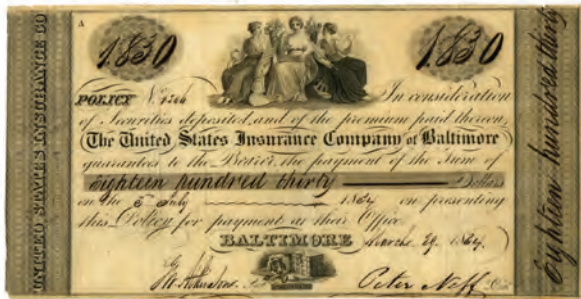 A
1830 1830
POLICY No. 1366 In consideration
of Securities deposited, and of the premium paid thereon,
The United States Insurance Company of Baltimore
guarantees to the Bearer, the payment of the Sum of
Eighteen hundred thirty Dollars
on the 5 July 1864 on presenting
this Policy for payment at their Office.
BALTIMORE March 29. 1864.
Peter Neff
UNITED STATES INSURANCE CO
Eighteen hundred thirty